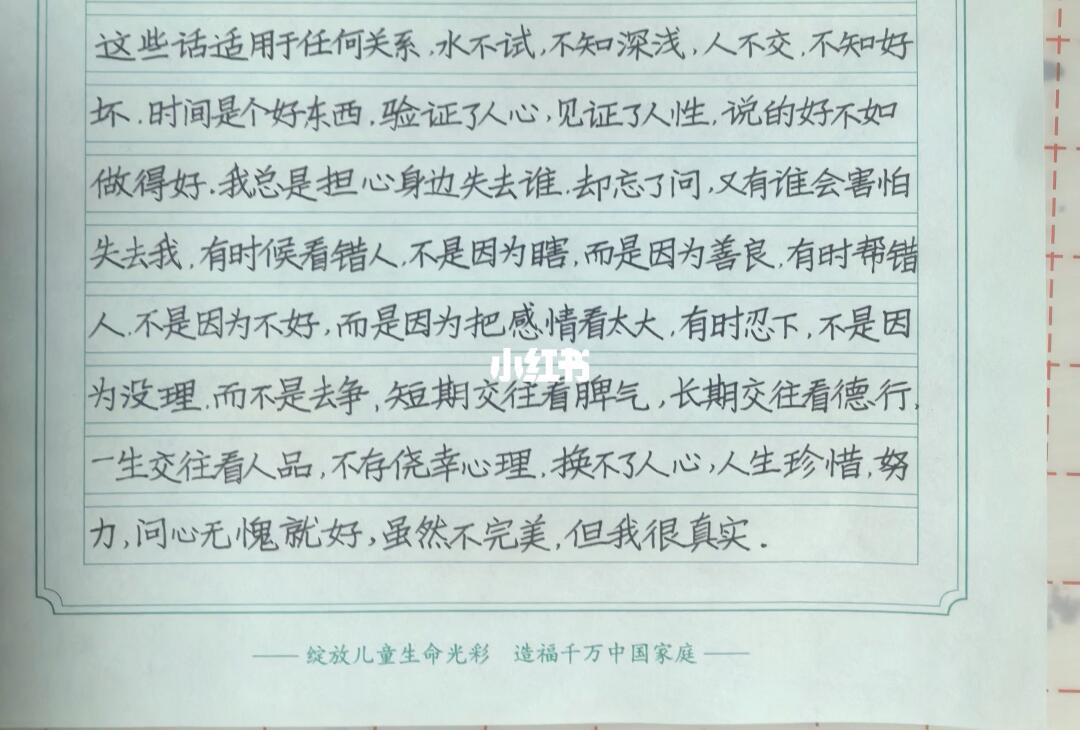 这些话适用于任何关系,水不试,不知深浅,人不交,不知好
坏.时间是个好东西.验证了人心,见证了人性,说的好不如
做得好.我总是担心身边失去谁.却忘了问,又有谁会害怕
失去我.有时候看错人.不是因为瞎,而是因为善良.有时帮错
人.不是因为不好,而是因为把感情看太大,有时忍下,不是因
小红书
为没理.而不是去争,短期交往看脾气,长期交往看德行,
一生交往看人品,不存侥幸心理.换不了人心,人生珍惜,努
力,问心无愧就好,虽然不完美,但我很真实.
——绽放儿童生命光彩 造福千万中国家庭——